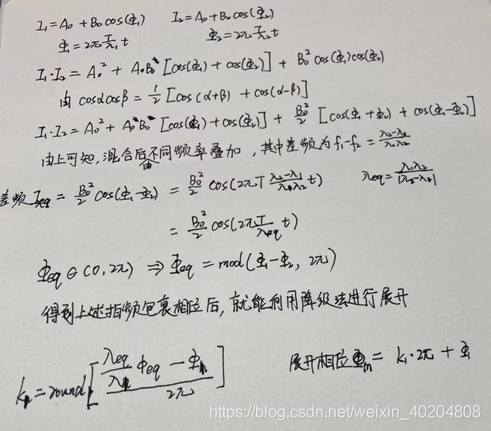 I₁ = A₀ + B₀ cos(Φ₁)    I₂ = A₀ + B₀ cos(Φ₂)
Φ₁ = 2π T/λ₁ t    Φ₂ = 2π T/λ₂ t
I₁·I₂ = A₀² + A₀B₀ [cos(Φ₁) + cos(Φ₂)] + B₀² cos(Φ₁)cos(Φ₂)
由 cosαcosβ = 1/2 [cos(α+β) + cos(α-β)]
I₁·I₂ = A₀² + A₀B₀ [cos(Φ₁) + cos(Φ₂)] + B₀²/2 [cos(Φ₁+Φ₂) + cos(Φ₁-Φ₂)]
由上可知,混合后不同频率叠加,其中差频为 f₁-f₂ = (λ₂-λ₁)/(λ₁λ₂)
差频 Ieq = B₀²/2 cos(Φ₁-Φ₂) = B₀²/2 cos(2πT (λ₂-λ₁)/(λ₁λ₂) t)    λeq = λ₁λ₂/|λ₂-λ₁|
= B₀²/2 cos(2π T/λeq t)
Φeq ∈ (0, 2π) ⇒ Φeq = mod(Φ₁-Φ₂, 2π)
得到上述拍频包裹相位后,就能利用降级法进行展开
= round[(λeq/λ Φeq - Φ)/2π]    展开相位 = k₁·2π + Φ
https://blog.csdn.net/weixin_40204808